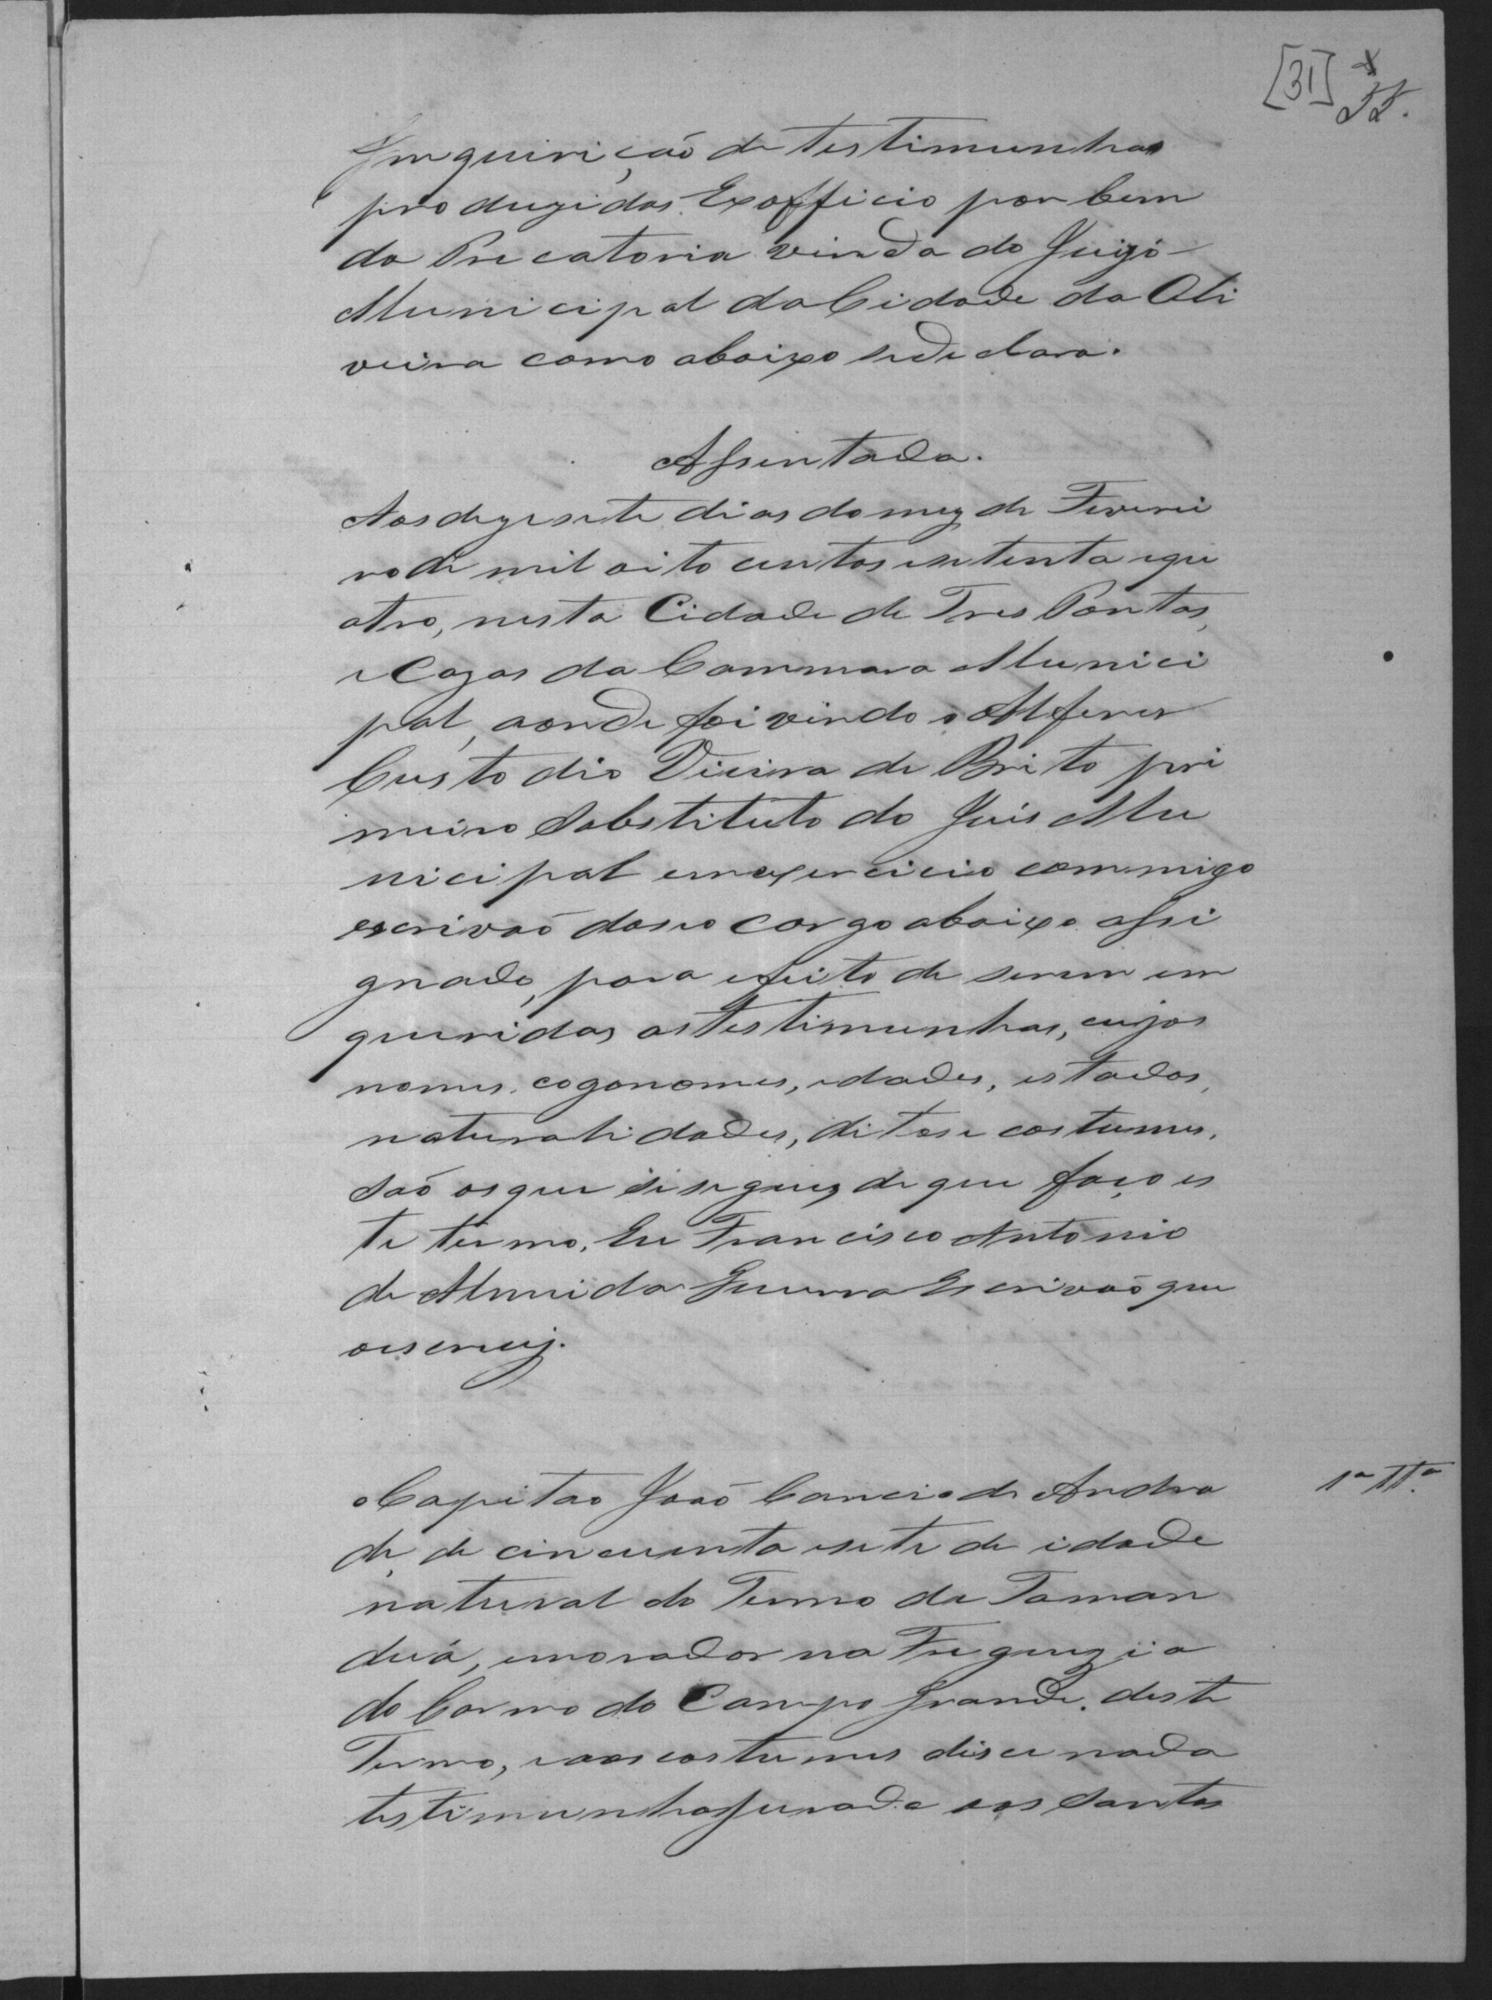 [31]
Inquirição de testimunhas
produzidas Exofficio por bem
da Precatoria vinda do Juizo
Municipal da Cidade da Oli
veira como abaixo se declara.
Assentada.
Aos dezesete dias do mez de Feverei
ro de mil oito centos esetenta equ
atro, nesta Cidade de Tres Pontas,
e Cazas da Cammara Munici
pal, aonde foi vindo o Alferes
Custodio Vieira de Brito pri
meiro Sobstituto do Juis Mu
nicipal em exercicio commigo
escrivaõ doseo cargo abaixo assi
gnado, para efeito de serem en
queridas as testimunhas, cujos
nomes, cogonomes, idades, estados,
naturalidades, ditos e costumes,
saõ os que se segues, de que faço es
te termo, Eu Francisco Antonio
de Almeida Guerra Escrivaõ que
oescrevj.
1ª Ttª
o Capitao Joaõ Cancio de Andra
de, de cincuenta esete de idade
natural do Termo de Taman
duá, emorador na Freguezia
do Carmo do Campo Grande, deste
Termo, eaos costumes disce nada
testimunha jurada aos Santos